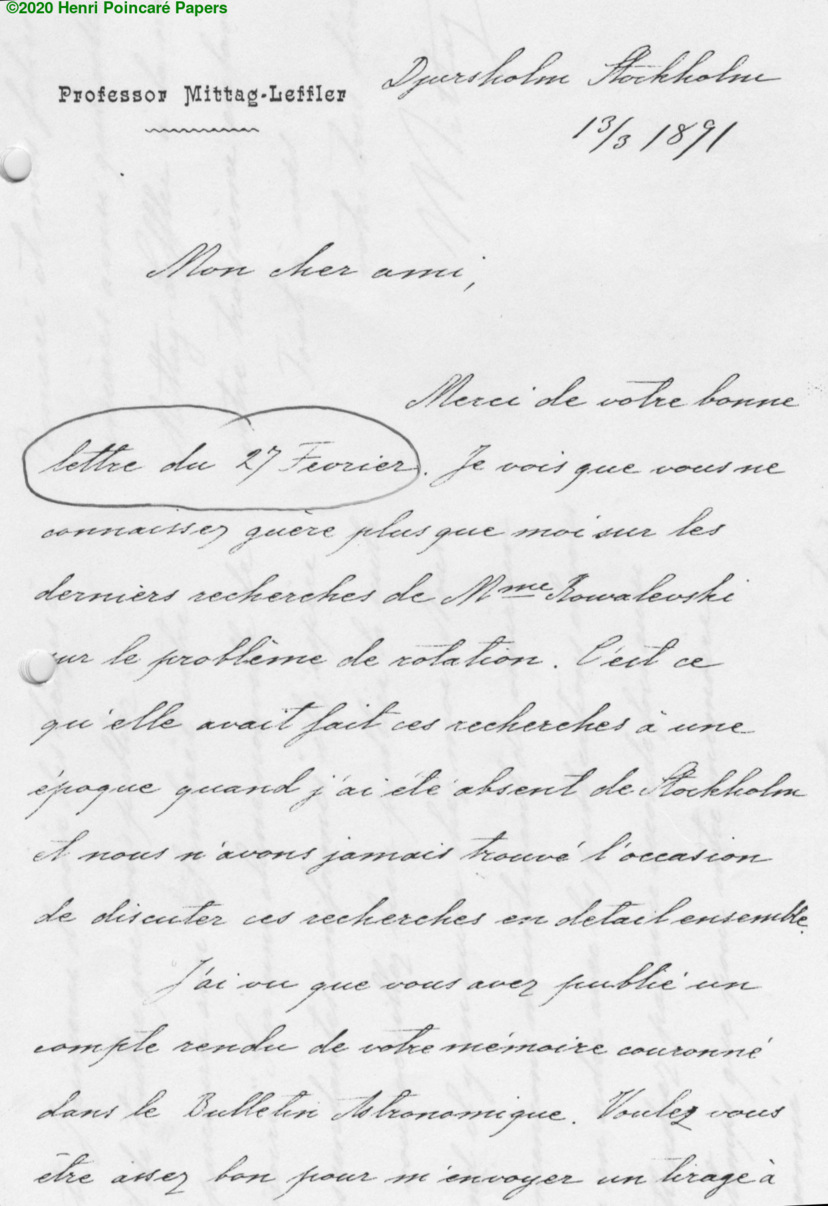 ©2020 Henri Poincaré Papers
Professor Mittag-Leffler
Djursholm Stockholm
13/3 1891
Mon cher ami,
Merci de votre bonne
lettre du 27 Fevrier. Je vois que vous ne
connaissez guère plus que moi sur les
derniers recherches de Mme Kowalevski
sur le problème de rotation. C'est ce
qu'elle avait fait ces recherches à une
époque quand j'ai été absent de Stockholm
et nous n'avons jamais trouvé l'occasion
de discuter ces recherches en detail ensemble.
J'ai vu que vous avez publié un
compte rendu de votre mémoire couronné
dans le Bulletin Astronomique. Voulez vous
être assez bon pour m'envoyer un tirage à